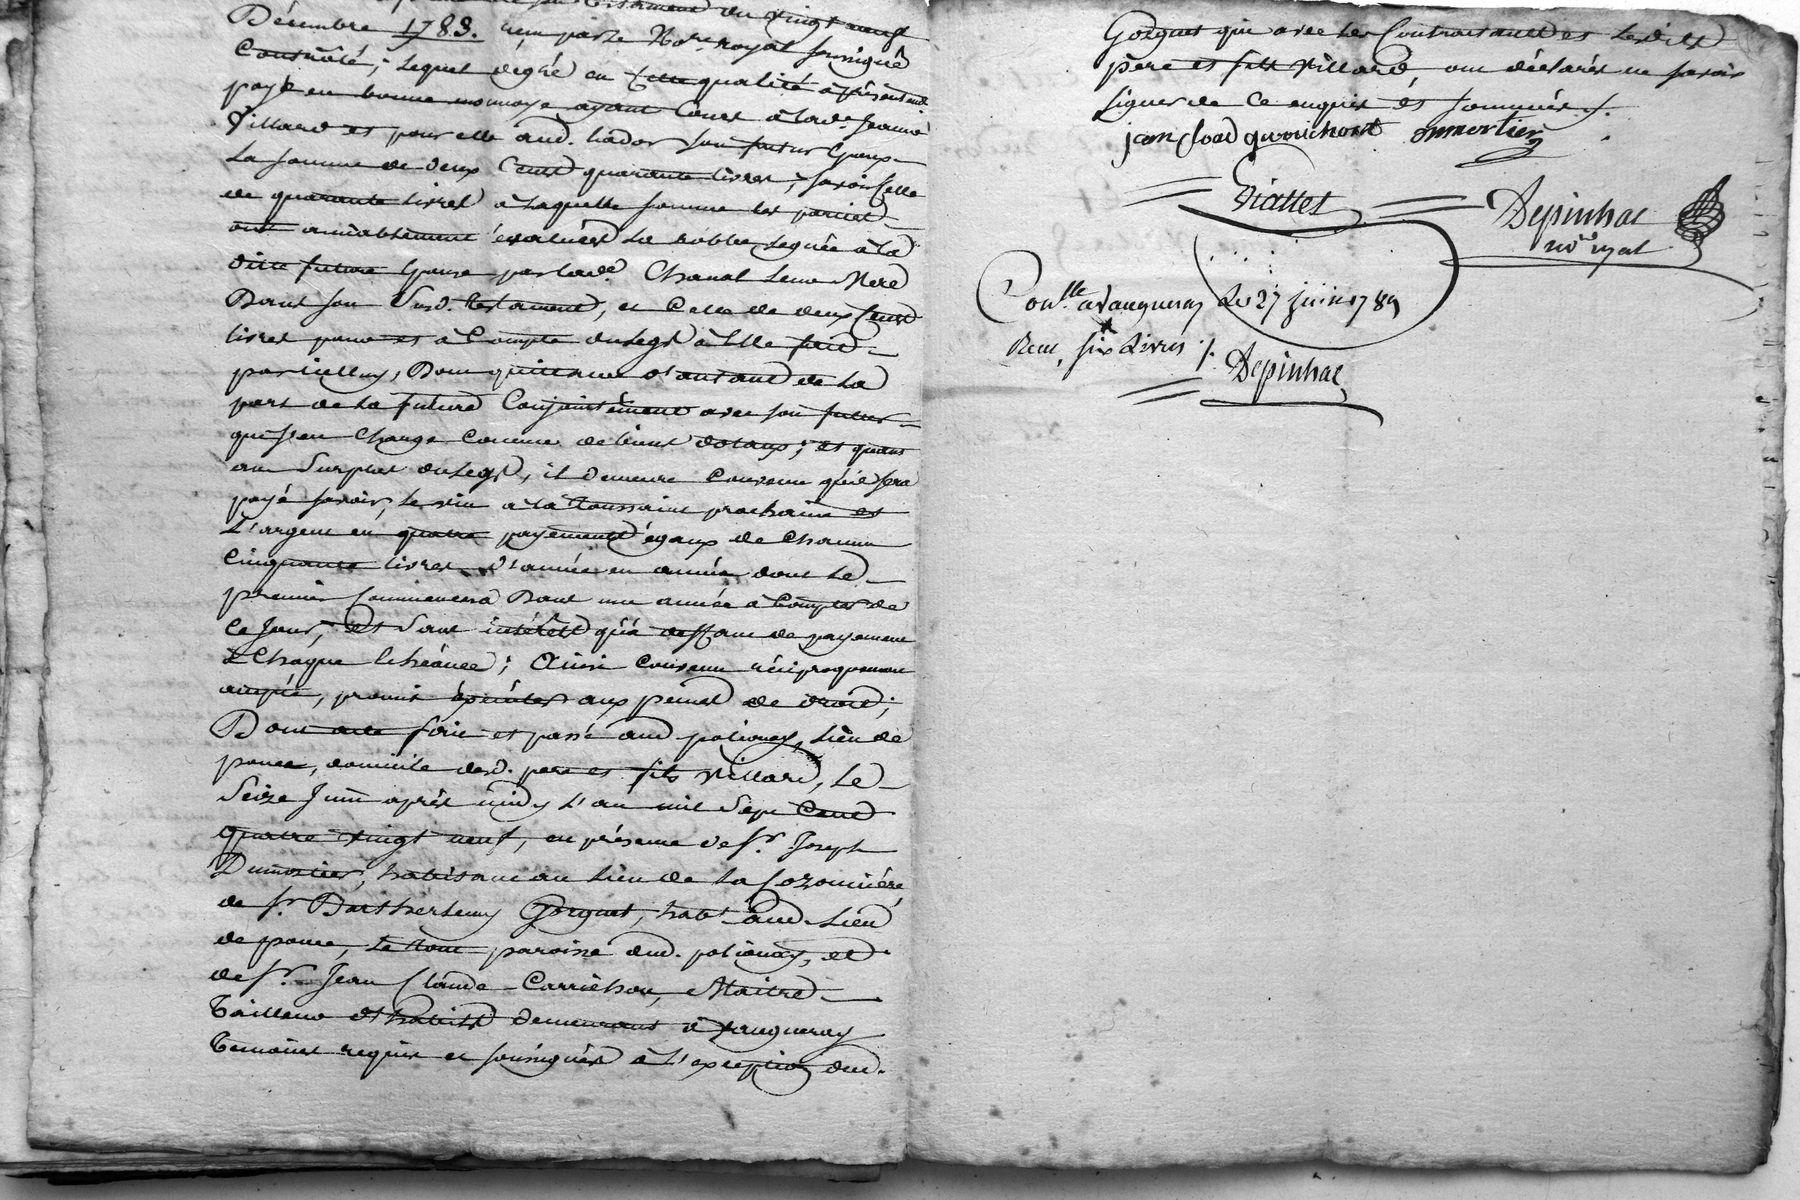 testament du vingt neuf
Décembre 1788. reçu par le No.re royal soussigné
Controllé; Lequel degré en cette qualité a présentement
payé en bonne monnoye ayant Cours à lad.e Jeanne
Villard et pour elle aud. son futur Epoux
La somme de deux Cent quarante livres, savoir celle
de quarante livres à laquelle somme les parties
ont amiablement évaluée la robbe leguée à la
ditte future Epouse par lad.e Chanal leur Mere
Dans son Susd. testament, et Celle de deux Cent
livres pour et à Compte du legs à Elle fait
par icelluy, Dont quittance d'autant de la
part de la future Conjointement avec son futur
qui s'en charge comme de biens dotaux; et quant
au Surplus du legs, il demeure Convenu qu'il sera
payé savoir, le vin à la Toussaint prochaine et
L'argent en quatre payements égaux de Chacun
Cinquante livres d'année en année dont le
premier Commencera Dans une année à Compter de
Ce Jour, et Sans intérêts qu'à deffaut de payement
à Chaque Echéance; Ainsi Convenu réciproquement
accepté, promis exécuter aux peines de droit;
Dont acte fait et passé aud. polionay, Lieu de
ponce, domicile desd. pere et fils Villard, Le
Seize Juin après midy L'an mil Sept Cent
quatre vingt neuf, en présence de S.r Joseph
Dumortier, habitant au Lieu de la
de S.r Barthelemy Gorgus, hab.t aud. Lieu
de ponce, le tout paroisse dud. polionay, et
de S.r Jean Claude Carrichon, Maitre
Tailleur d'habits demeurant à Vaugneray
Temoins requis et soussignés à L'exception dud.
Gorgus qui avec les Contractants et lesdits
père et fils Villard, ont déclarés ne savoir
signer de Ce enquis et sommés ./.
jean Dumortier
Viallet
Depinhac
no.re royal
Con.lle à Vaugneray Le 27 juin 1789
Reçu, six Livres ./. Depinhac